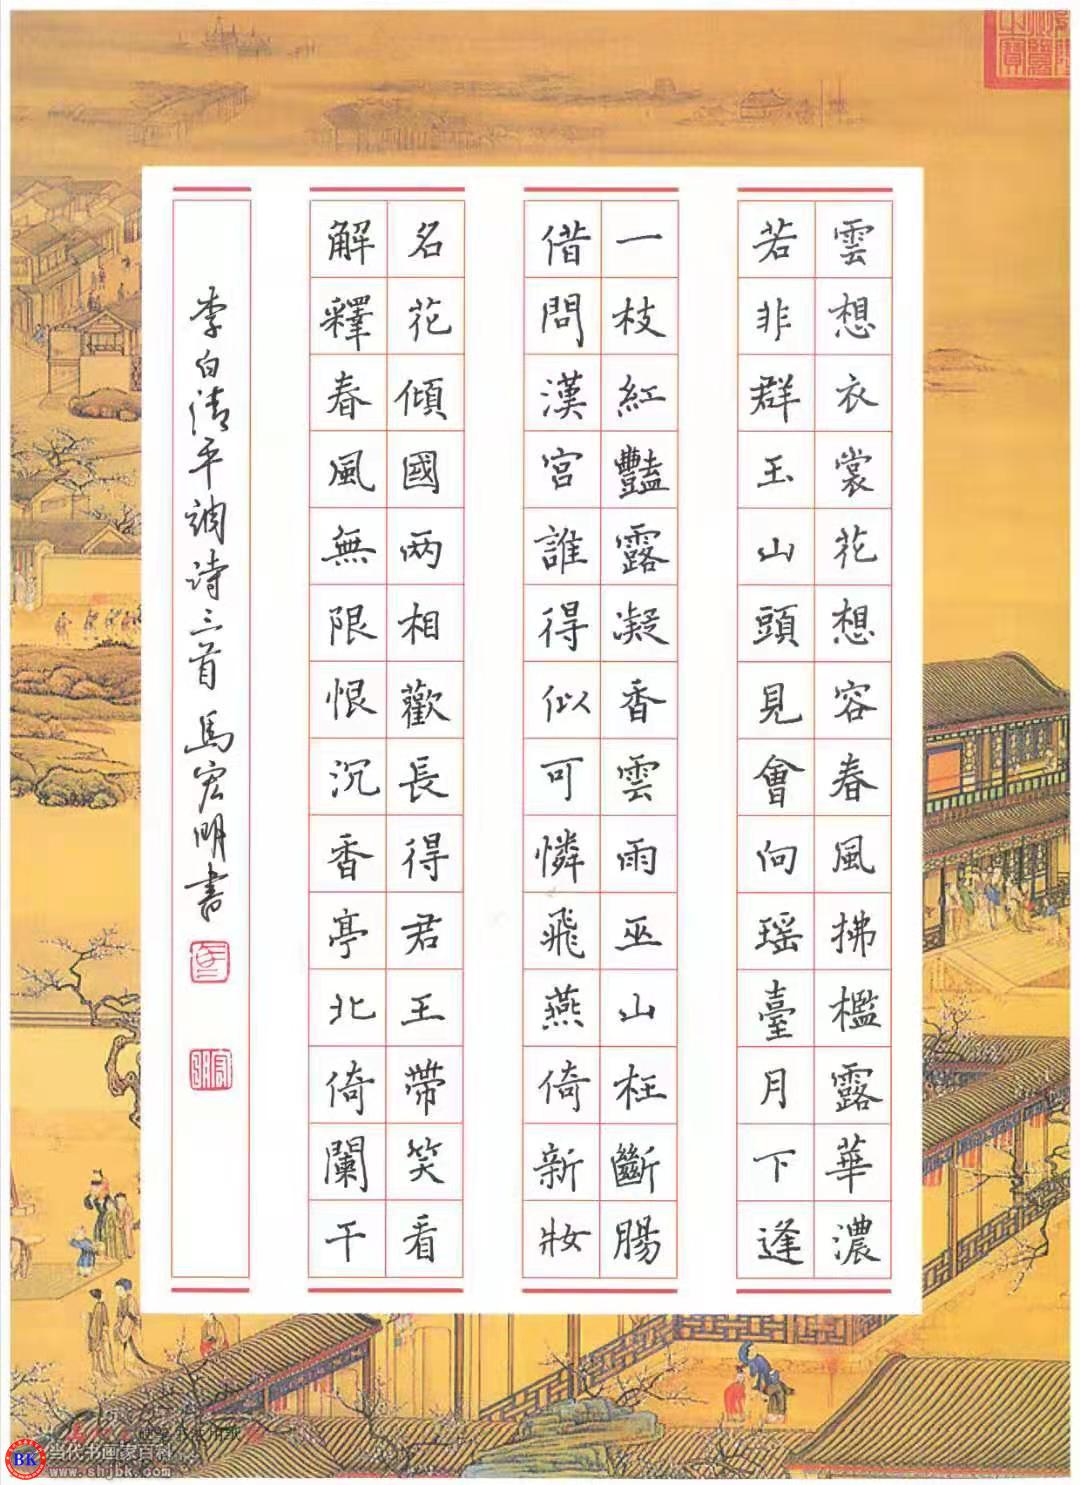 雲想衣裳花想容春風拂檻露華濃
若非群玉山頭見會向瑶臺月下逢
一枝紅豔露凝香雲雨巫山枉斷腸
借問漢宮誰得似可憐飛燕倚新妝
名花傾國两相歡長得君王帶笑看
解釋春風無限恨沉香亭北倚闌干
李白清平調诗三首 馬宏明書
BK 当代书画家百科
www.shjbk.com